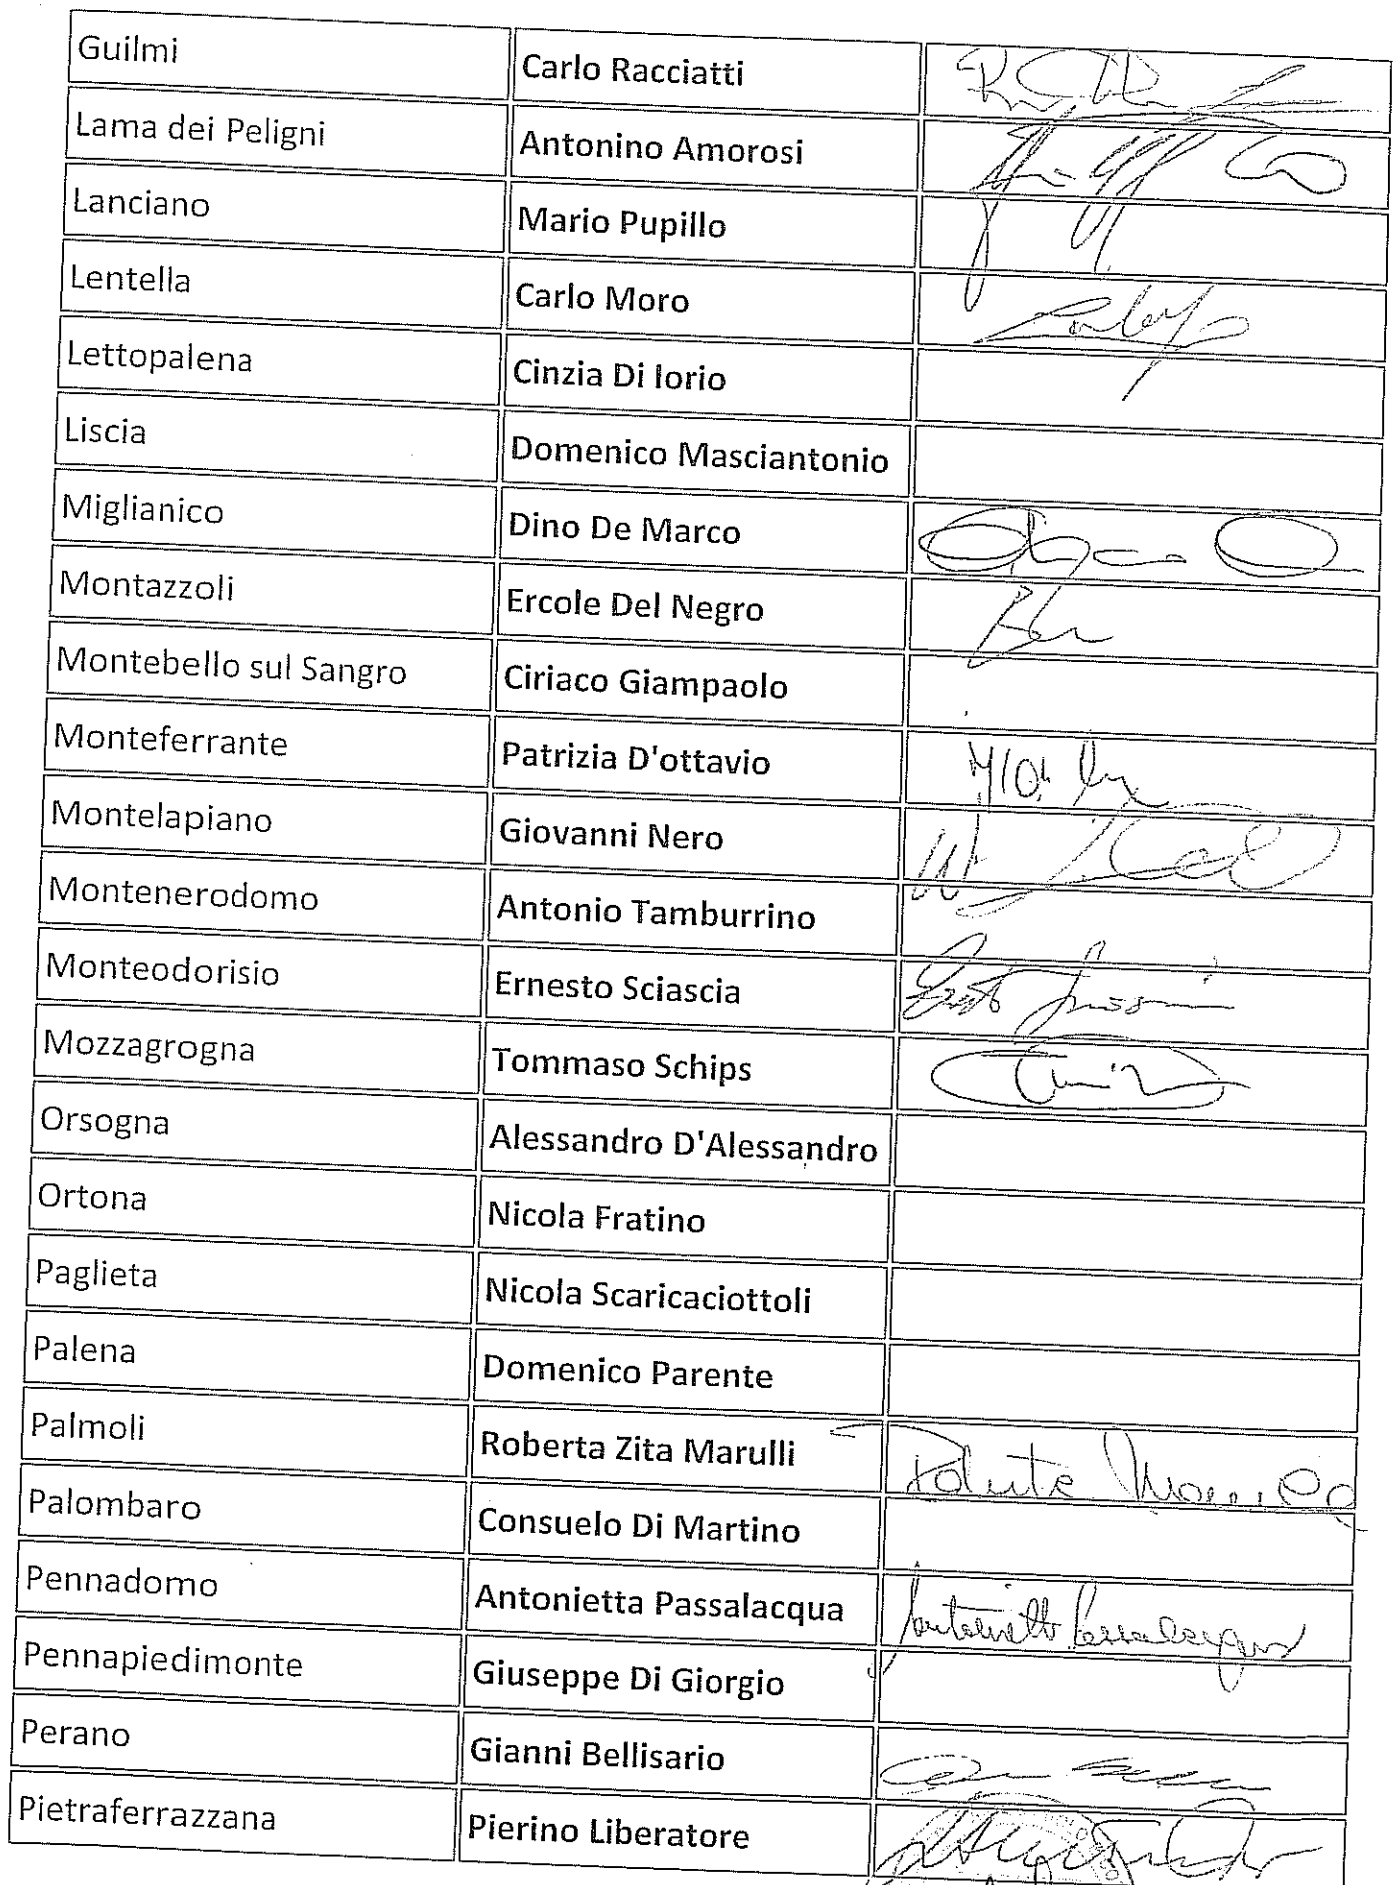 Guilmi Carlo Racciatti
Lama dei Peligni Antonino Amorosi
Lanciano Mario Pupillo
Lentella Carlo Moro
Lettopalena Cinzia Di Iorio
Liscia Domenico Masciantonio
Miglianico Dino De Marco
Montazzoli Ercole Del Negro
Montebello sul Sangro Ciriaco Giampaolo
Monteferrante Patrizia D'ottavio
Montelapiano Giovanni Nero
Montenerodomo Antonio Tamburrino
Monteodorisio Ernesto Sciascia
Mozzagrogna Tommaso Schips
Orsogna Alessandro D'Alessandro
Ortona Nicola Fratino
Paglieta Nicola Scaricaciottoli
Palena Domenico Parente
Palmoli Roberta Zita Marulli
Palombaro Consuelo Di Martino
Pennadomo Antonietta Passalacqua Antonietta Passalacqua
Pennapiedimonte Giuseppe Di Giorgio
Perano Gianni Bellisario
Pietraferrazzana Pierino Liberatore